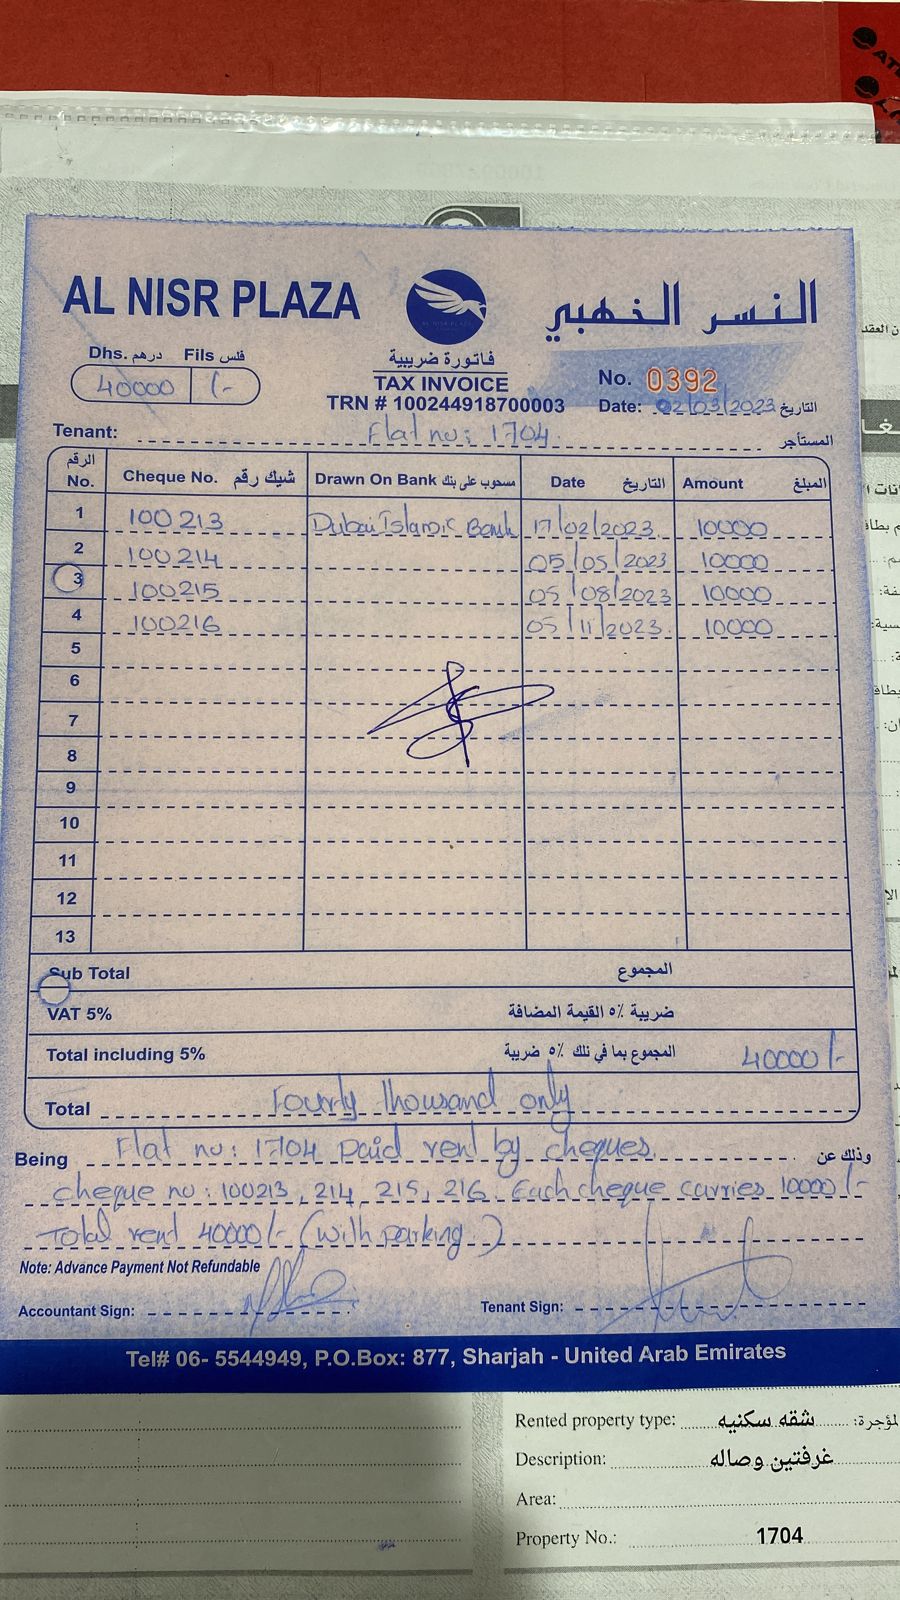 AL NISR PLAZA
النسر الذهبي
AL NISR PLAZA
Dhs. درهم Fils فلس
40000 /-
فاتورة ضريبية
TAX INVOICE
TRN # 100244918700003
No. 0392
Date: 02/03/2023 التاريخ
Tenant: Flat no: 1704 المستأجر
الرقم No. Cheque No. شيك رقم Drawn On Bank مسحوب على بنك Date التاريخ Amount المبلغ
1 100213 Dubai Islamic Bank 17/02/2023 10000
2 100214 05/05/2023 10000
3 100215 05/08/2023 10000
4 100216 05/11/2023 10000
5
6
7
8
9
10
11
12
13
Sub Total المجموع
VAT 5% ضريبة ٥٪ القيمة المضافة
Total including 5% المجموع بما في ذلك ٥٪ ضريبة 40000/-
Total Fourty thousand only
Being Flat no: 1704 paid rent by cheques. وذلك عن
cheque no: 100213, 214, 215, 216. Each cheque carries 10000/-
Total rent 40000/- (with parking)
Note: Advance Payment Not Refundable
Accountant Sign: Tenant Sign:
Tel# 06- 5544949, P.O.Box: 877, Sharjah - United Arab Emirates
Rented property type: شقه سكنيه
Description: غرفتين وصاله
Area:
Property No.: 1704